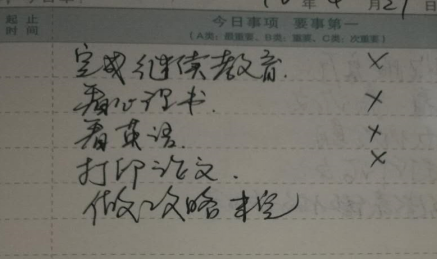 年4月21日
起止 今日事项 要事第一
时间 (A类:很重要、B类:重要、C类:次重要)
完成继续教育. ×
看心理书. ×
看英语. ×
打印论文. ×
做攻略 未完